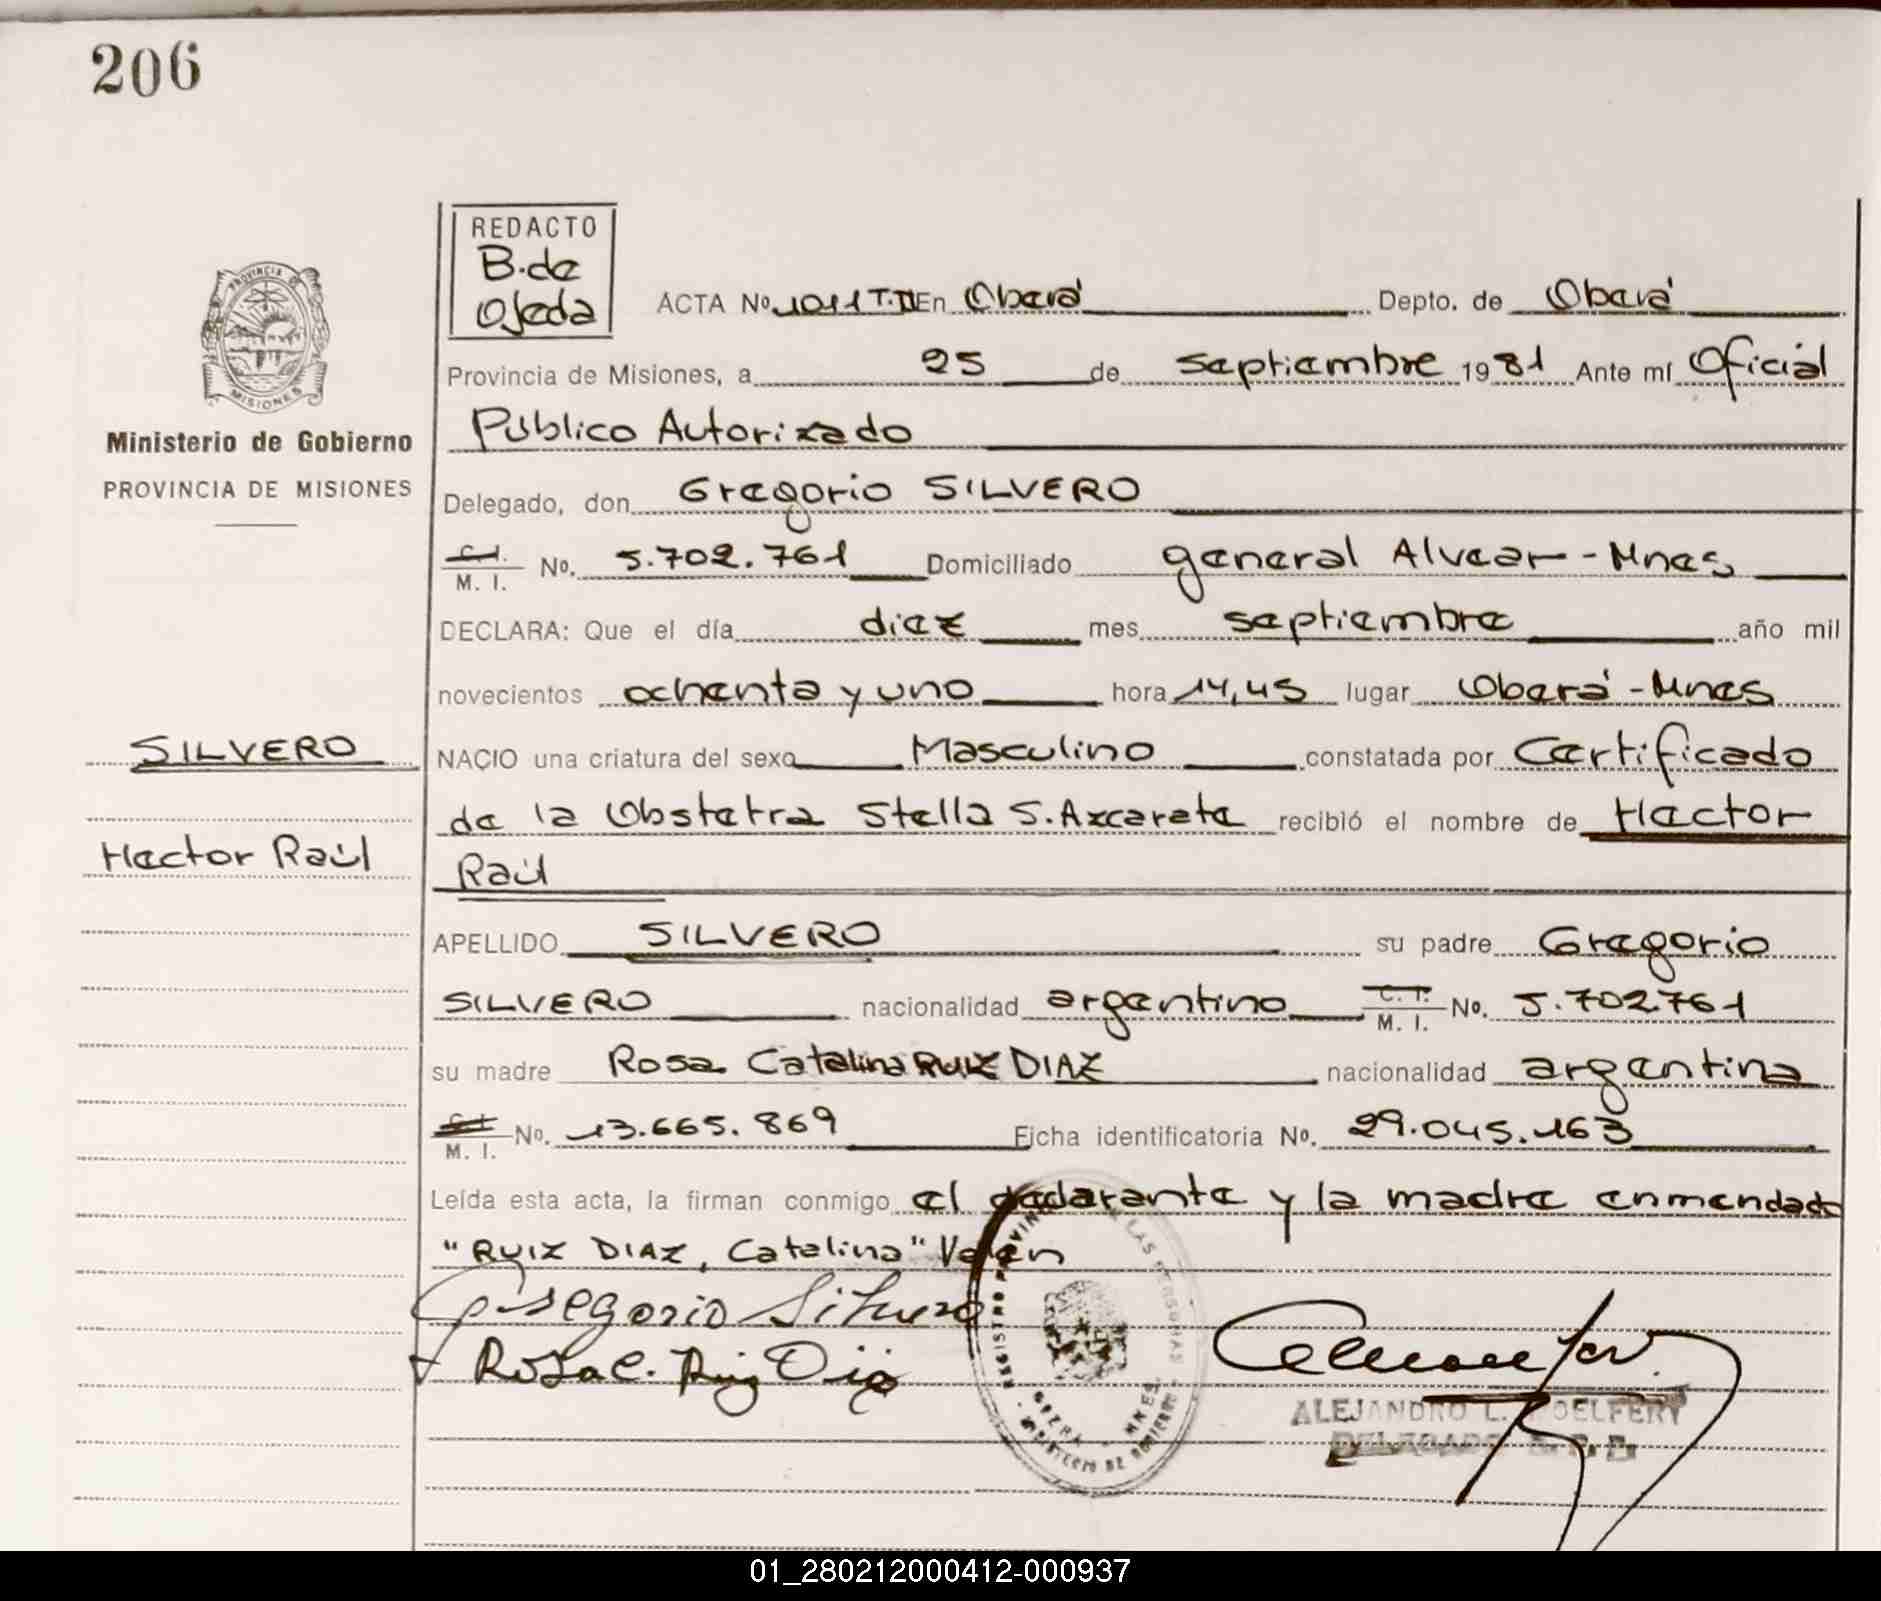 206
REDACTO
B. de
Ojeda
ACTA Nº 1011 T.II En Oberá Depto. de Oberá
Provincia de Misiones, a 25 de septiembre 1981 Ante mí Oficial
Público Autorizado
Ministerio de Gobierno
PROVINCIA DE MISIONES
Delegado, don Gregorio SILVERO
C. I.
M. I. No. 5.702.761 Domiciliado general Alvear - Mnes
DECLARA: Que el día diez mes septiembre año mil
novecientos ochenta y uno hora 14,45 lugar Oberá - Mnes
SILVERO
NACIO una criatura del sexo Masculino constatada por Certificado
de la Obstetra Stella S. Azcarate recibió el nombre de Hector
Hector Raúl
Raúl
APELLIDO SILVERO su padre Gregorio
SILVERO nacionalidad argentino C. I. M. I. No. 5.702761
su madre Rosa Catalina RUIZ DIAZ nacionalidad argentina
C. I.
M. I. No. 13.665.869 Ficha identificatoria No. 29.045.163
Leída esta acta, la firman conmigo el declarante y la madre enmendado
"RUIZ DIAZ, Catalina" Valen
Gregorio Silvero
Rosa C. Ruiz Dia
ALEJANDRO L.
DELEGADO R. P. P.
01_280212000412-000937